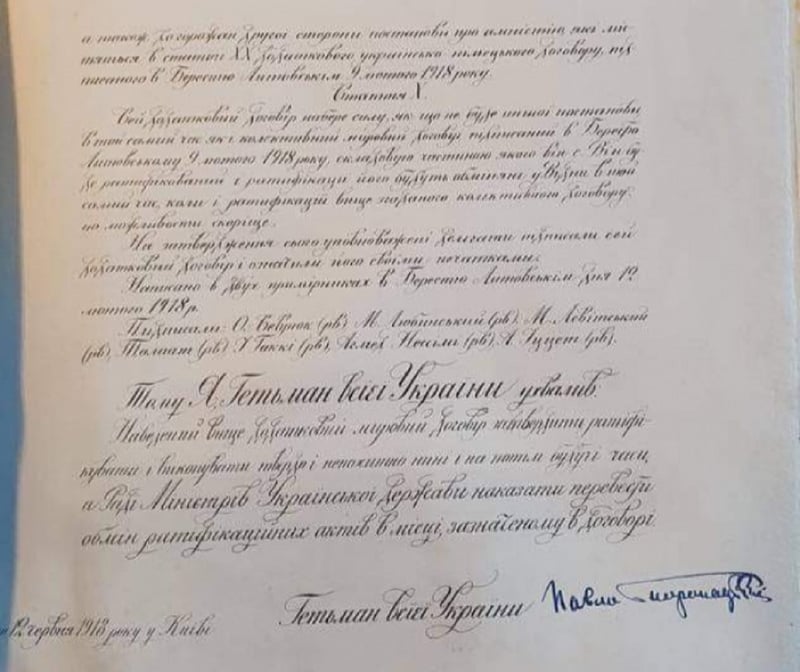 а також горожан другої сторони постанови про амністію, які мі-
тяться в статті XX додаткового українсько-німецького договору, під
писаного в Берестю Литовськім 9 лютого 1918 року.
Стаття X.
Сей додатковий договір набере силу, як що не буде иншої постанови,
в той самий час як і колективний мировий договір підписаний в Берестю
Литовському 9 лютого 1918 року, складовою частиною якого він є. Він бу-
де ратифікований і ратифікації його будуть обміняні у Відні в той
самий час, коли і ратифікації вище згаданого колективного договору
по можливости скорше.
На затвердження сього уповноважені делегати підписали сей
додатковий договір і означили його своїми печатками.
Написано в двух примірниках в Берестю Литовськім дня 12
лютого 1918 р.
Підписали: О. Севрюк (рв) М. Любинський (рв), М. Левітський
(рв), Талаат (рв) І. Гаккі (рв), Ахмед Нессімі (рв) А. Іззет (рв).
Тому Я, Гетьман всієї України ухвалив:
Наведений вище додатковий мировий договір затвердити, ратифі-
кувати і виконувати твердо і непохитно нині і на потім будучі часи,
а Раді Міністрів Української Держави наказати перевести
обмін ратифікаційних актів в місці, зазначеному в договорі
Гетьман всієї України Павло Скоропадський
12 червня 1918 року у Київі